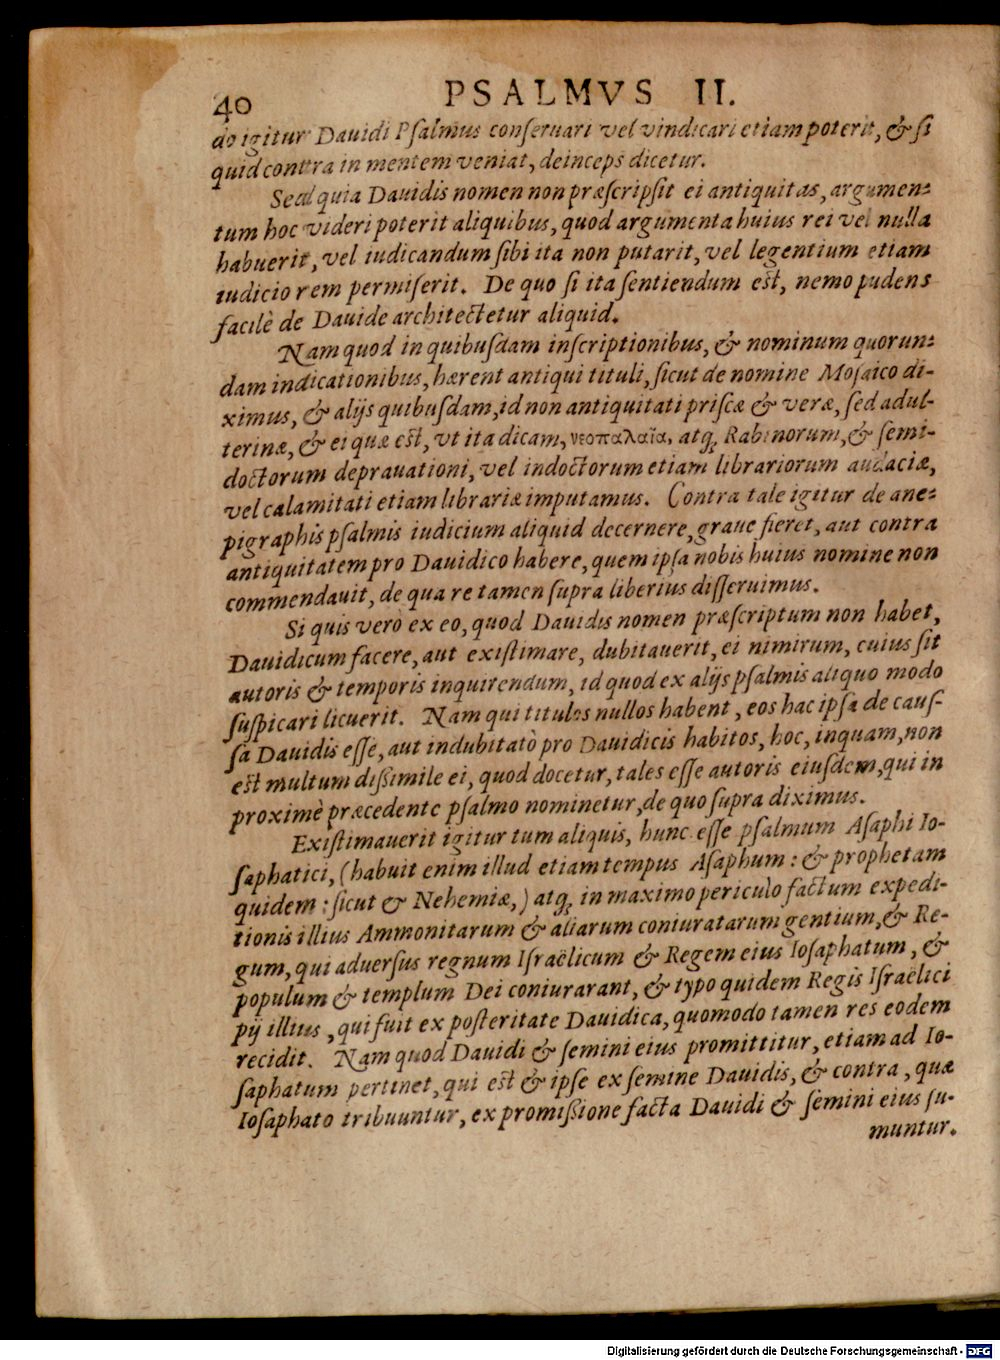 40 PSALMVS II.
do igitur Dauidi Psalmus conseruari vel vindicari etiam poterit, & si
quid contra in mentem veniat, deinceps dicetur.
Sed quia Dauidis nomen non præscripsit ei antiquitas, argumen-
tum hoc videri poterit aliquibus, quod argumenta huius rei vel nulla
habuerit, vel iudicandum sibi ita non putarit, vel legentium etiam
iudicio rem permiserit. De quo si ita sentiendum est, nemo pudens
facilè de Dauide architectetur aliquid.
Nam quod in quibusdam inscriptionibus, & nominum quorun-
dam indicationibus, hærent antiqui tituli, sicut de nomine Mosaico di-
ximus, & alijs quibusdam, id non antiquitati priscæ & veræ, sed adul-
terinæ, & ei quæ est, vt ita dicam, νεοπαλαῖα, atq; Rabinorum, & semi-
doctorum deprauationi, vel indoctorum etiam librariorum audaciæ,
vel calamitati etiam librariæ imputamus. Contra tale igitur de ane-
pigraphis psalmis iudicium aliquid decernere, graue fieret, aut contra
antiquitatem pro Dauidico habere, quem ipsa nobis huius nomine non
commendauit, de qua re tamen supra liberius disseruimus.
Si quis verò ex eo, quod Dauidis nomen præscriptum non habet,
Dauidicum facere, aut existimare, dubitauerit, ei nimirum, cuius sit
autoris & temporis inquirendum, id quod ex alijs psalmis aliquo modo
suspicari licuerit. Nam qui titulos nullos habent, eos hac ipsa de caus-
sa Dauidis esse, aut indubitatò pro Dauidicis habitos, hoc, inquam, non
est multum dissimile ei, quod docetur, tales esse autoris eiusdem, qui in
proximè præcedente psalmo nominetur, de quo supra diximus.
Existimauerit igitur tum aliquis, hunc esse psalmum Asaphi Io-
saphatici, (habuit enim illud etiam tempus Asaphum: & prophetam
quidem: sicut & Nehemiæ,) atq; in maximo periculo factum expedi-
tionis illius Ammonitarum & aliarum coniuratarum gentium, & Re-
gum, qui aduersus regnum Israëlicum & Regem eius Iosaphatum, &
populum & templum Dei coniurarant, & typo quidem Regis Israëlici
pij illius, qui fuit ex posteritate Dauidica, quomodo tamen res eodem
recidit. Nam quod Dauidi & semini eius promittitur, etiam ad Io-
saphatum pertinet, qui est & ipse ex semine Dauidis, & contra, quæ
Iosaphato tribuuntur, ex promissione facta Dauidi & semini eius su-
muntur.
Digitalisierung gefördert durch die Deutsche Forschungsgemeinschaft - DFG